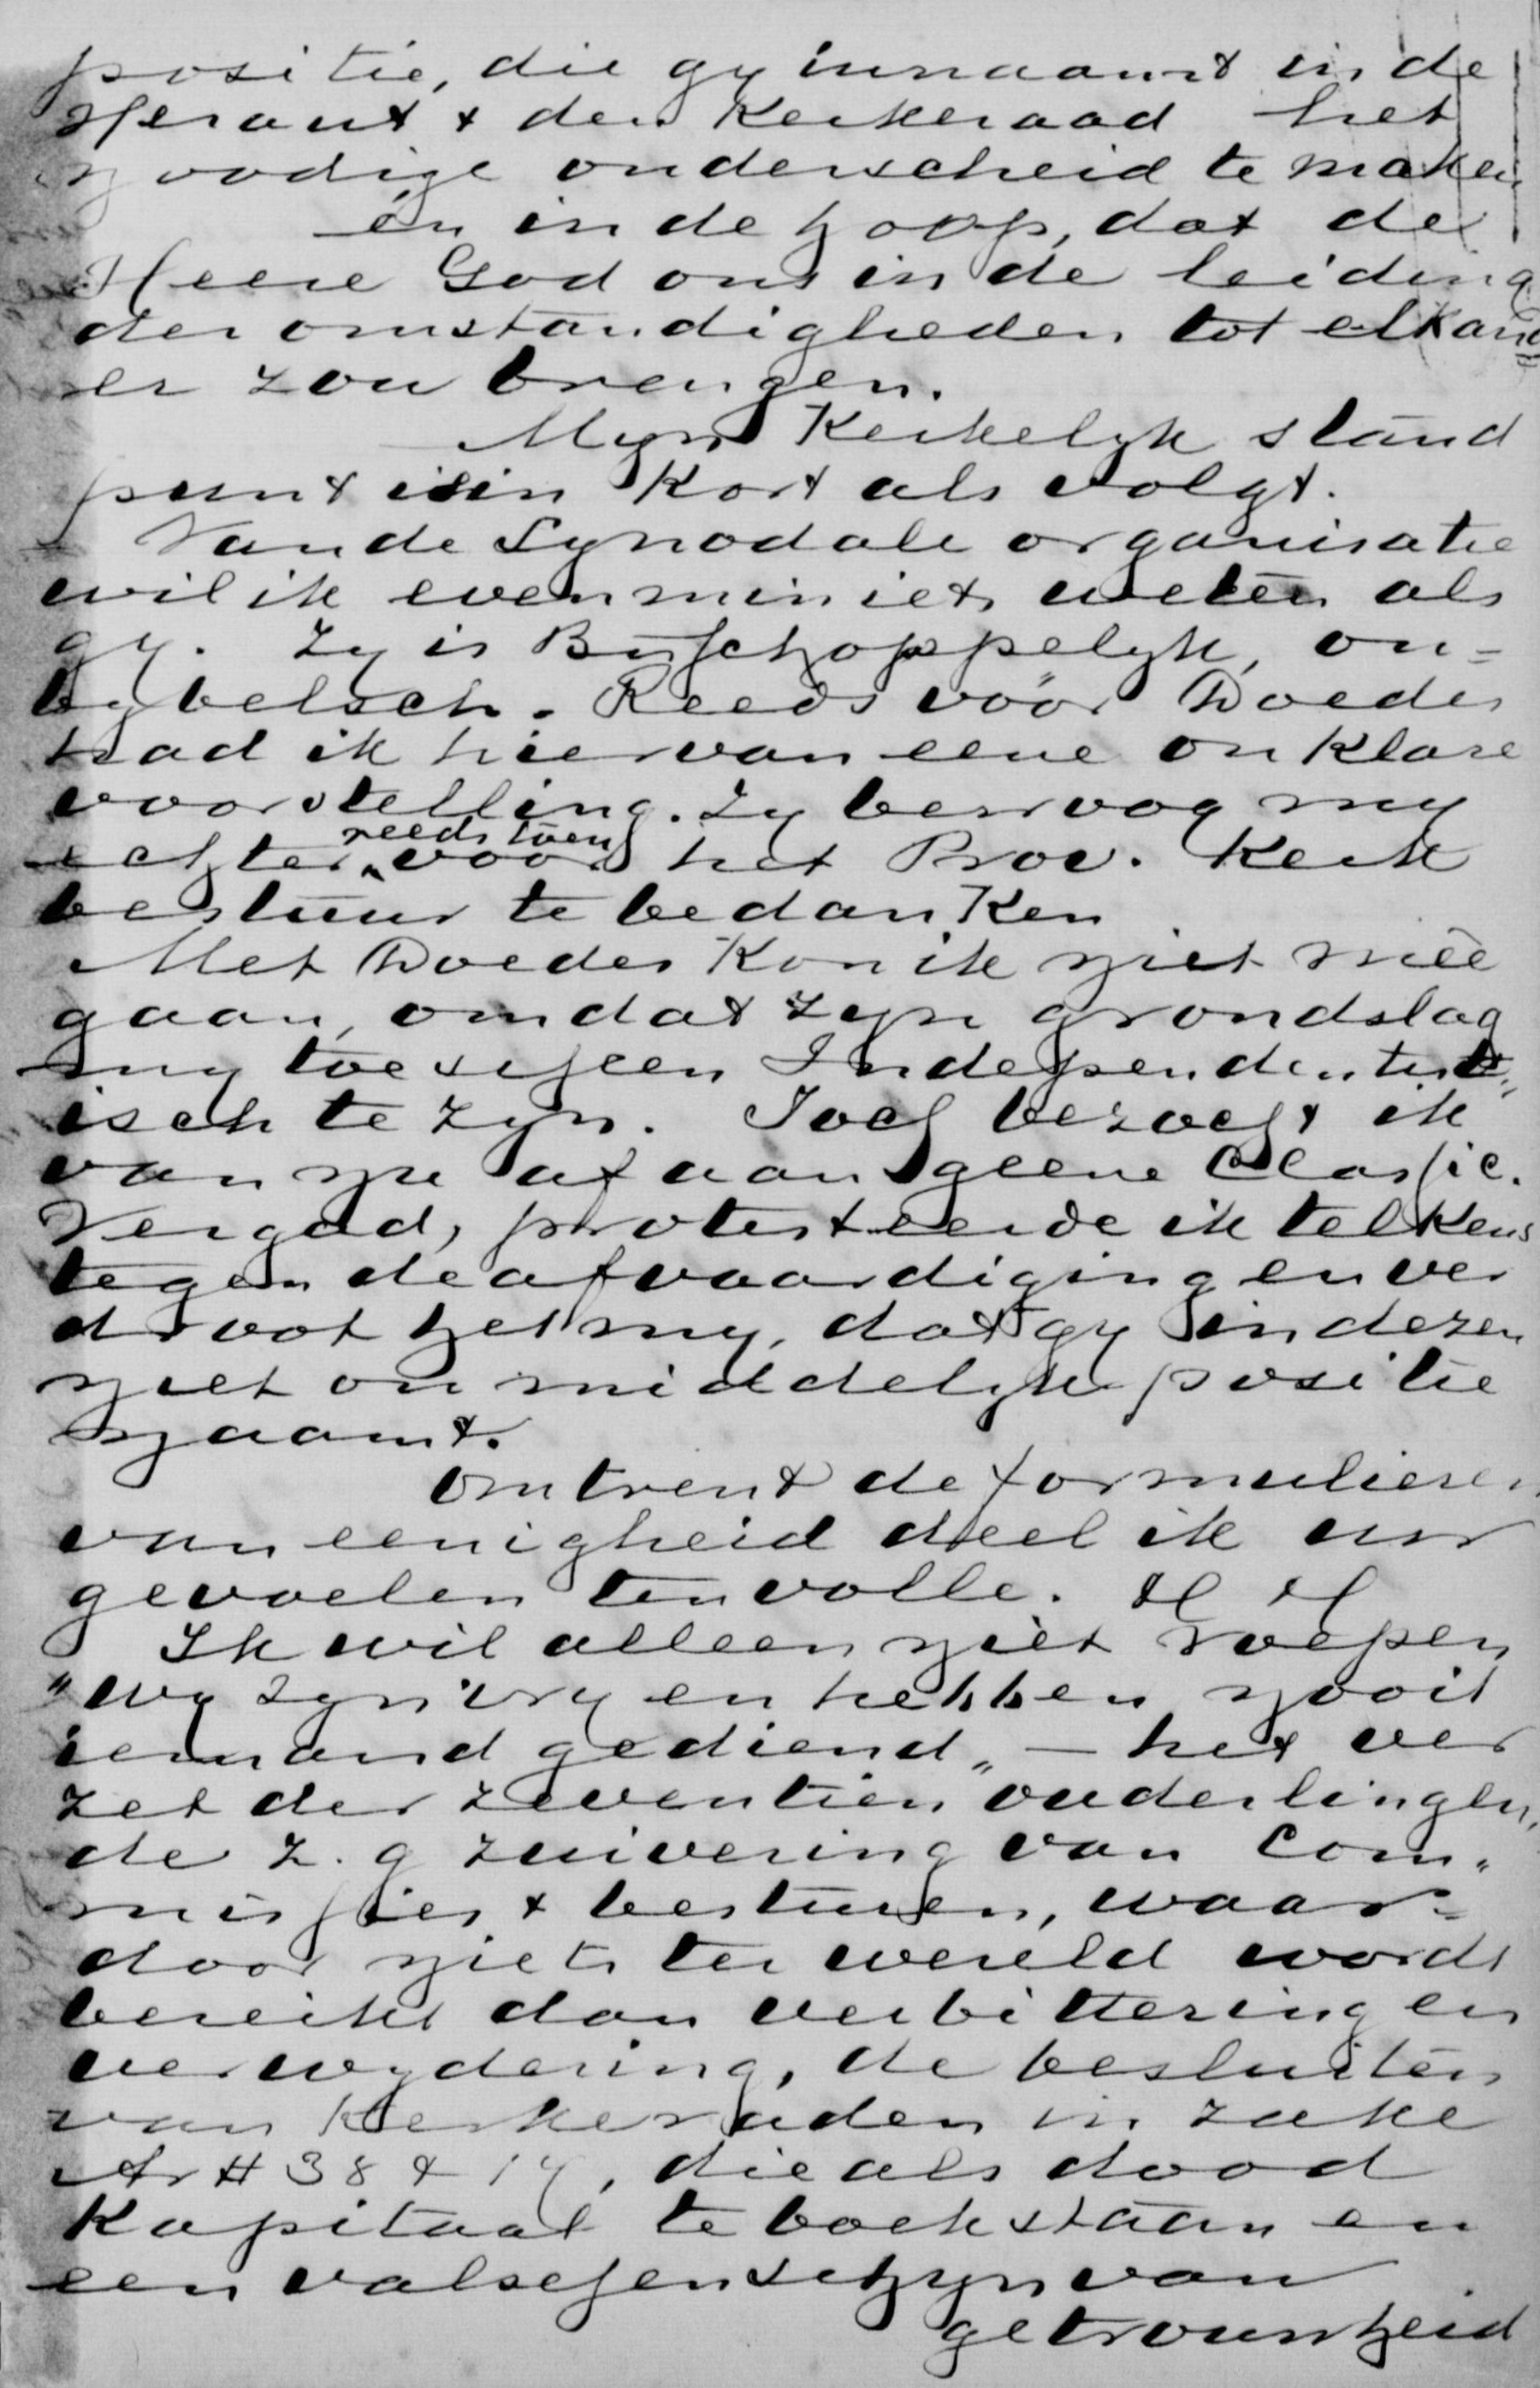 positie, die gy innaamt in de
Heraut & den Kerkeraad het
noodige onderscheid te maken
en in de hoop, dat de
Heere God ons in de leiding
der omstandigheden tot elkand
er zou brengen.
Myn Kerkelyk stand
punt is in Kort als volgt.
Van de Synodale organisatie
wil ik evenmin iets weten als
gy. Zy is Bysschoppelyk, on=
bybelsch. Reeds vóór Doedes
had ik hiervan eene onklare
voorstelling. Zy bewoog my
echter reeds toen voor het Prov. Kerk
bestuur te bedanken
Met Doedes Kon ik niet meê
gaan, omdat zyn grondslag
my toescheen Independentist
isch te zyn. Toch bezocht ik
van nu af aan geene Classic.
Vergad, protesteerde ik telkens
tegen de afvaardiging en ver
droot het my, dat gy in dezen
niet onmiddelyk positie
naamt.
Omtrent de formulieren
van eenigheid deel ik uw
gevoelen ten volle.
Ik wil alleen niet roepen
"wy zyn vry en hebben nooit
iemand gediend" — het ver
zet der zeventien ouderlingen,
de z. g zuivering van Com"
missies & besturen, waar=
door niets ter wereld wordt
bereikt dan verbittering en
verwydering, de besluiten
van Kerkeraden in zake
Art 38 & 14, die als dood
Kapitaal te boek staan en
een valschen schyn van
getrouwheid